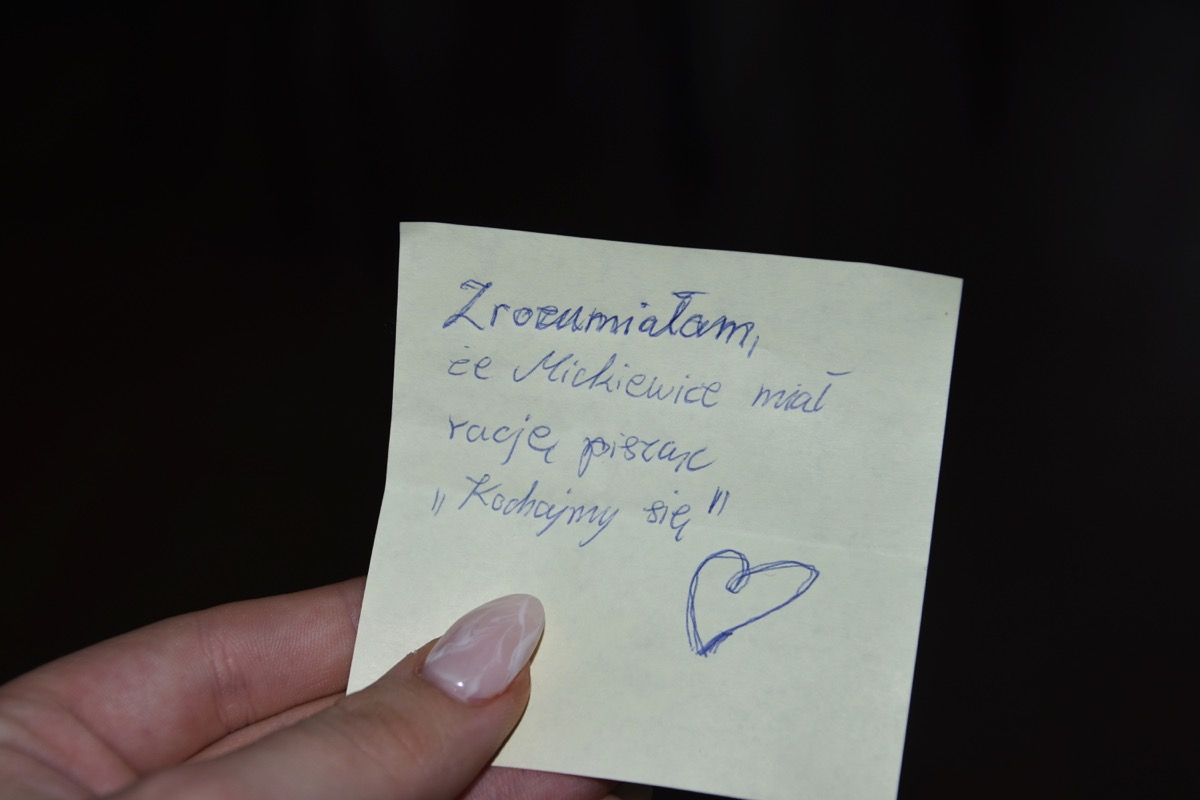 Zrozumiałam,
że Mickiewicz miał
rację pisząc
„Kochajmy się"